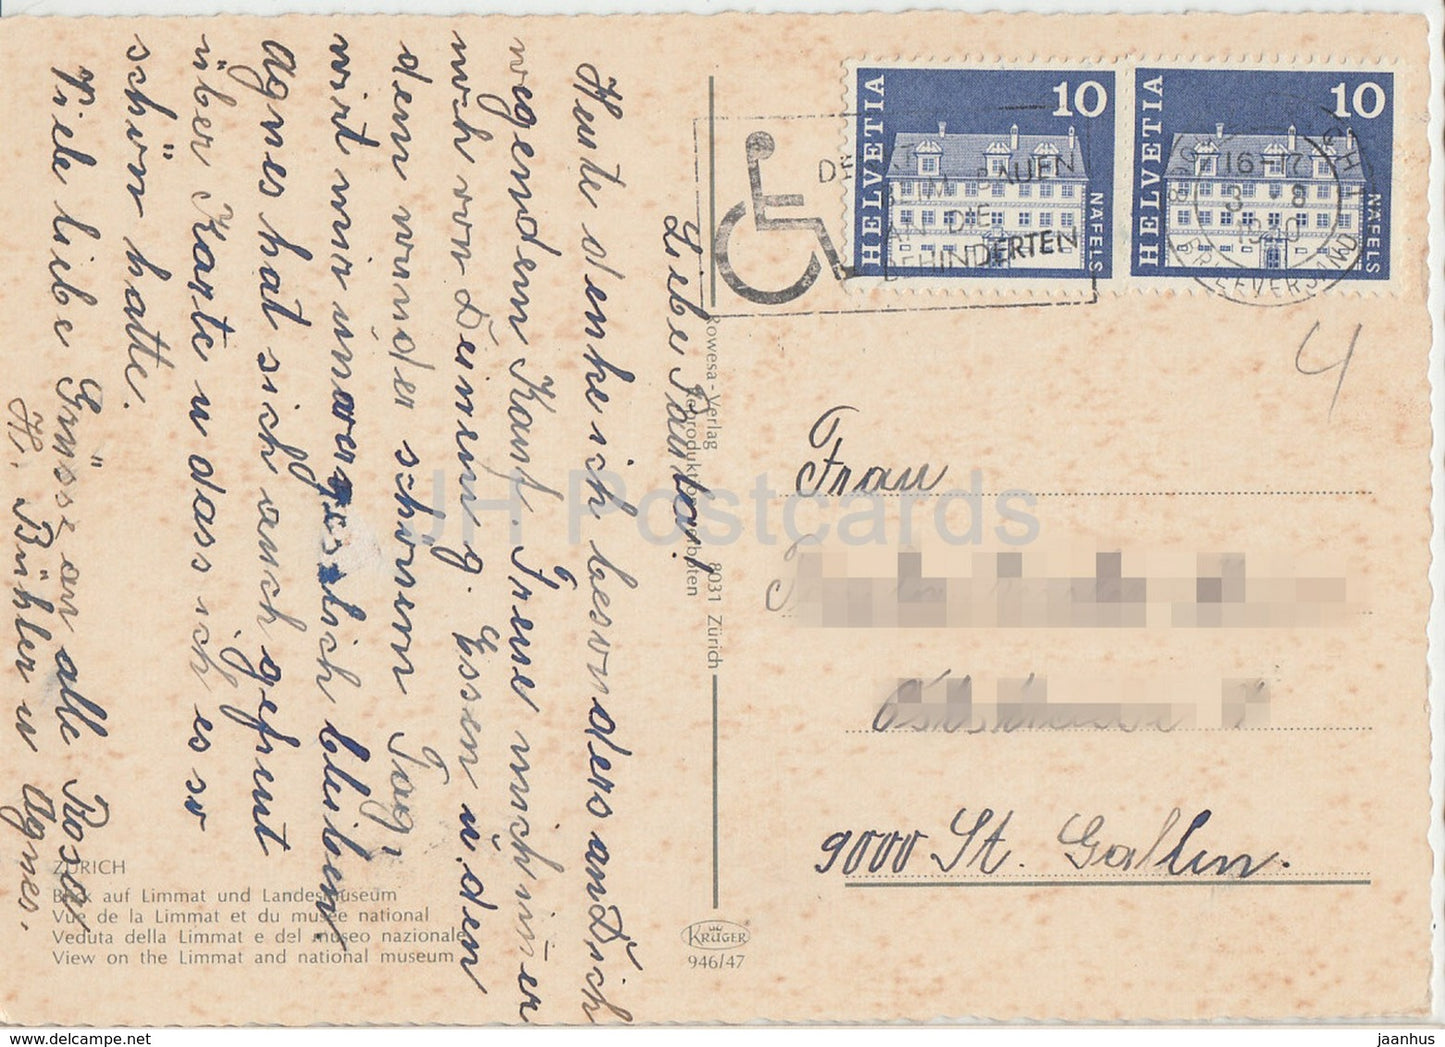 Liebe Paula!
Heute denke ich besonders an Dich
wegen dem Kauf. Freue mich im̄er
noch von Deinem g. Essen u. den
dem wunder schönen Tag,
wird mir unvergesslich bleiben.
Agnes hat sich auch gefreut
über Karte u dass ich es so
schön hatte.
Viele liebe Grüsse an alle Rosa
H. Bühler u Agnes.
HELVETIA
10
NÄFELS
HELVETIA
10
NÄFELS
BEIM BAUEN
AN DIE
BEHINDERTEN
16-21
BRIEFVERSAND
4
Frau
9000 St. Gallen.
Rowesa-Verlag 8031 Zürich
Reproduktion verboten
ZÜRICH
Blick auf Limmat und Landesmuseum
Vue de la Limmat et du musée national
Veduta della Limmat e del museo nazionale
View on the Limmat and national museum
KRÜGER
946/47
JH Postcards
jaanhus
https://www.delcampe.net